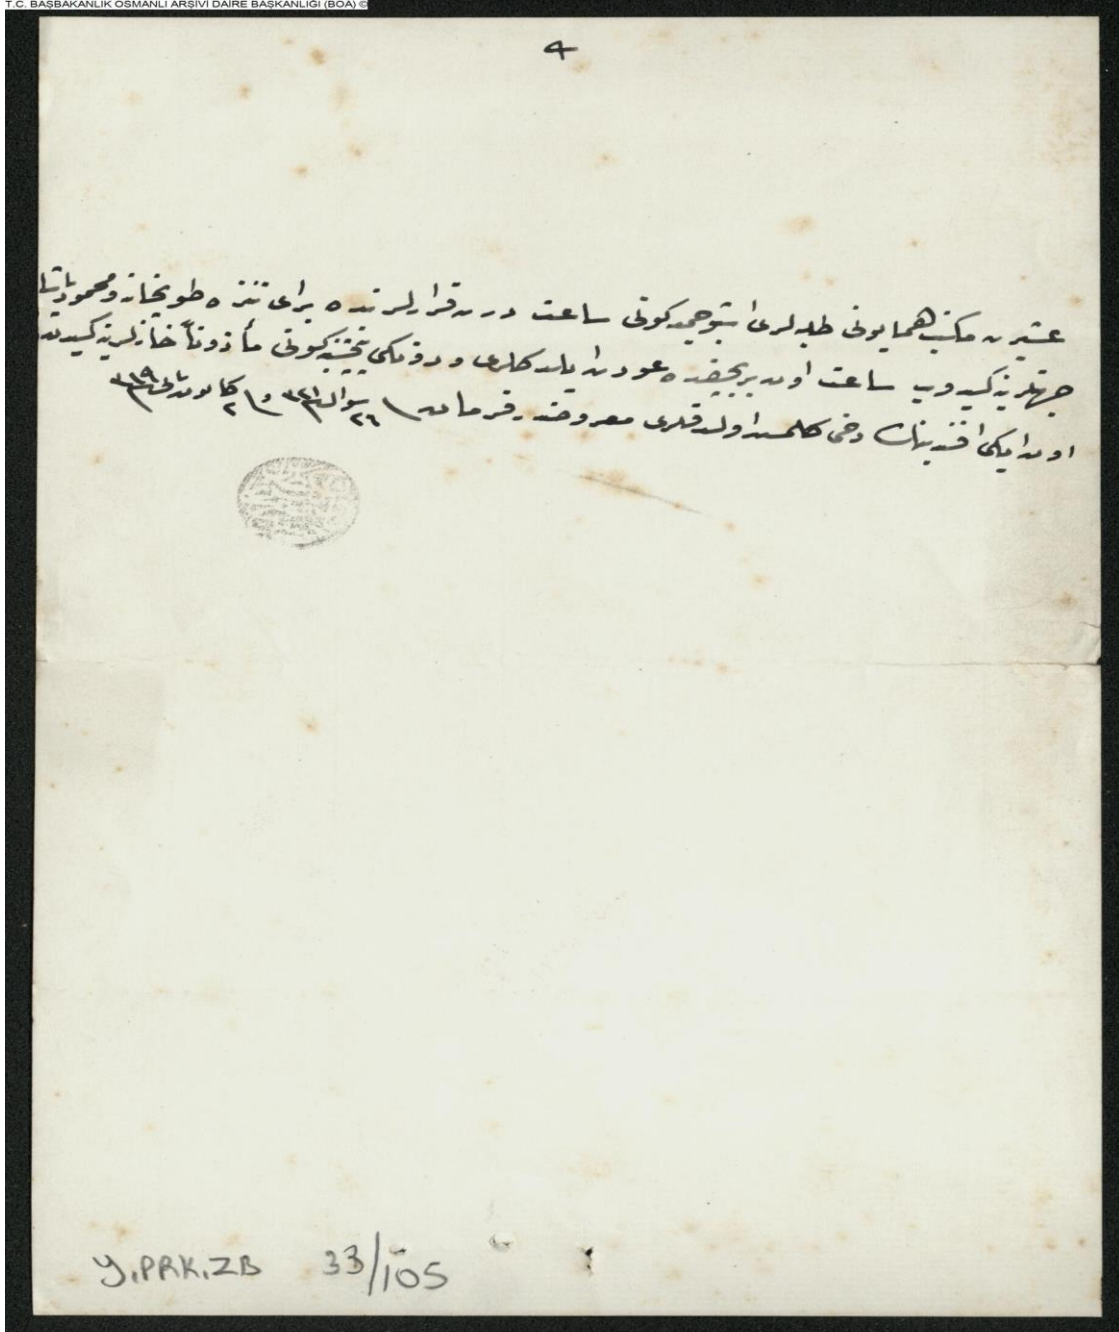 T.C. BAŞBAKANLIK OSMANLI ARŞİVİ DAİRE BAŞKANLIĞI (BOA) ©
عشيرت مكتب همايونى طلبه لرى اشبو جمعه كونى ساعت درت قرارلرنده براى تنزه طوپخانه و محمود پاشا
جهتلرينه كيدوب ساعت اون بر بچقده عودت ايلدكلرى و دونكى پنجشنبه كونى مأذوناً خانه لرينه كيدن
اون ايكى افندينك دخى كلمش اولدقلرى معروضدر فرمان ٢٦ شوال ٣٢١ و ٢ كانون ثانى ٣١٩
Y.PRK.ZB 33/105